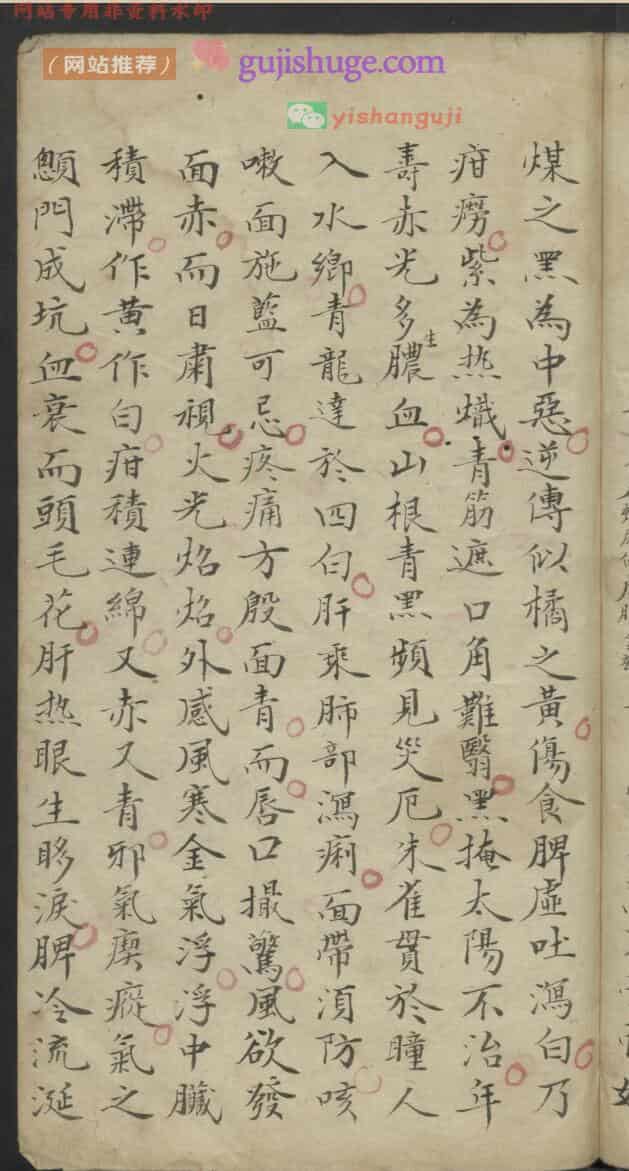 网站专用非资料水印
（网站推荐）
gujishuge.com
yishanguji
煤之黑為中惡逆傳似橘之黃傷食脾虛吐瀉白乃
疳癆紫為热熾青筋遮口角難醫黑掩太陽不治年
壽赤光多生膿血山根青黑頻見災厄朱雀貫於瞳人
入水鄉青龍達於四白肝乘肺部瀉痢面帶須防咳
嗽面施藍可忌疼痛方殷面青而唇口撮驚風欲發
面赤而日肅視火光焰焰外感風寒金氣浮浮中臟
積滯作黄作白疳積連綿又赤又青邪氣瘈瘲氣之
顖門成坑血衰而頭毛花肝热眼生眵淚脾冷流涎